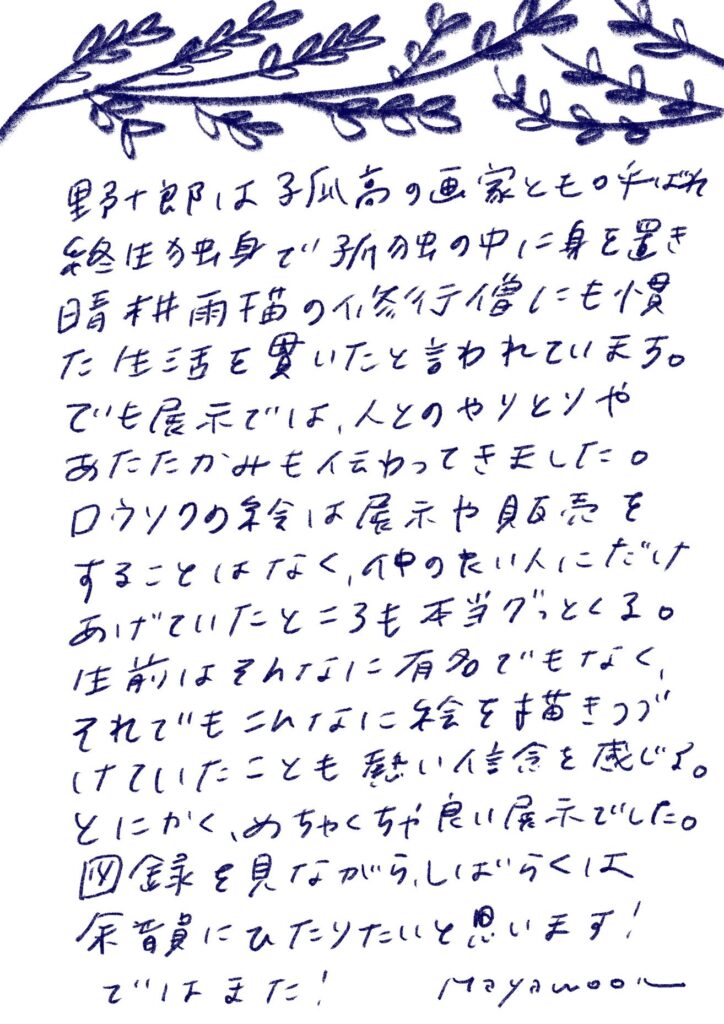 野十郎は孤高の画家とも呼ばれ
終生独身で孤独の中に身を置き
晴耕雨描の修行僧にも慣
た生活を貫いたと言われています。
でも展示では、人とのやりとりや
あたたかみも伝わってきました。
ロウソクの絵は展示や販売を
することはなく、仲のたい人にだけ
あげていたところも本当グっとくる。
生前はそんなに有名でもなく、
それでもこんなに絵を描きつづ
けていたことも熱い信念を感じる。
とにかく、めちゃくちゃ良い展示でした。
図録を見ながら、しばらくは
余韻にひたりたいと思います!
ではまた! Mayamoon